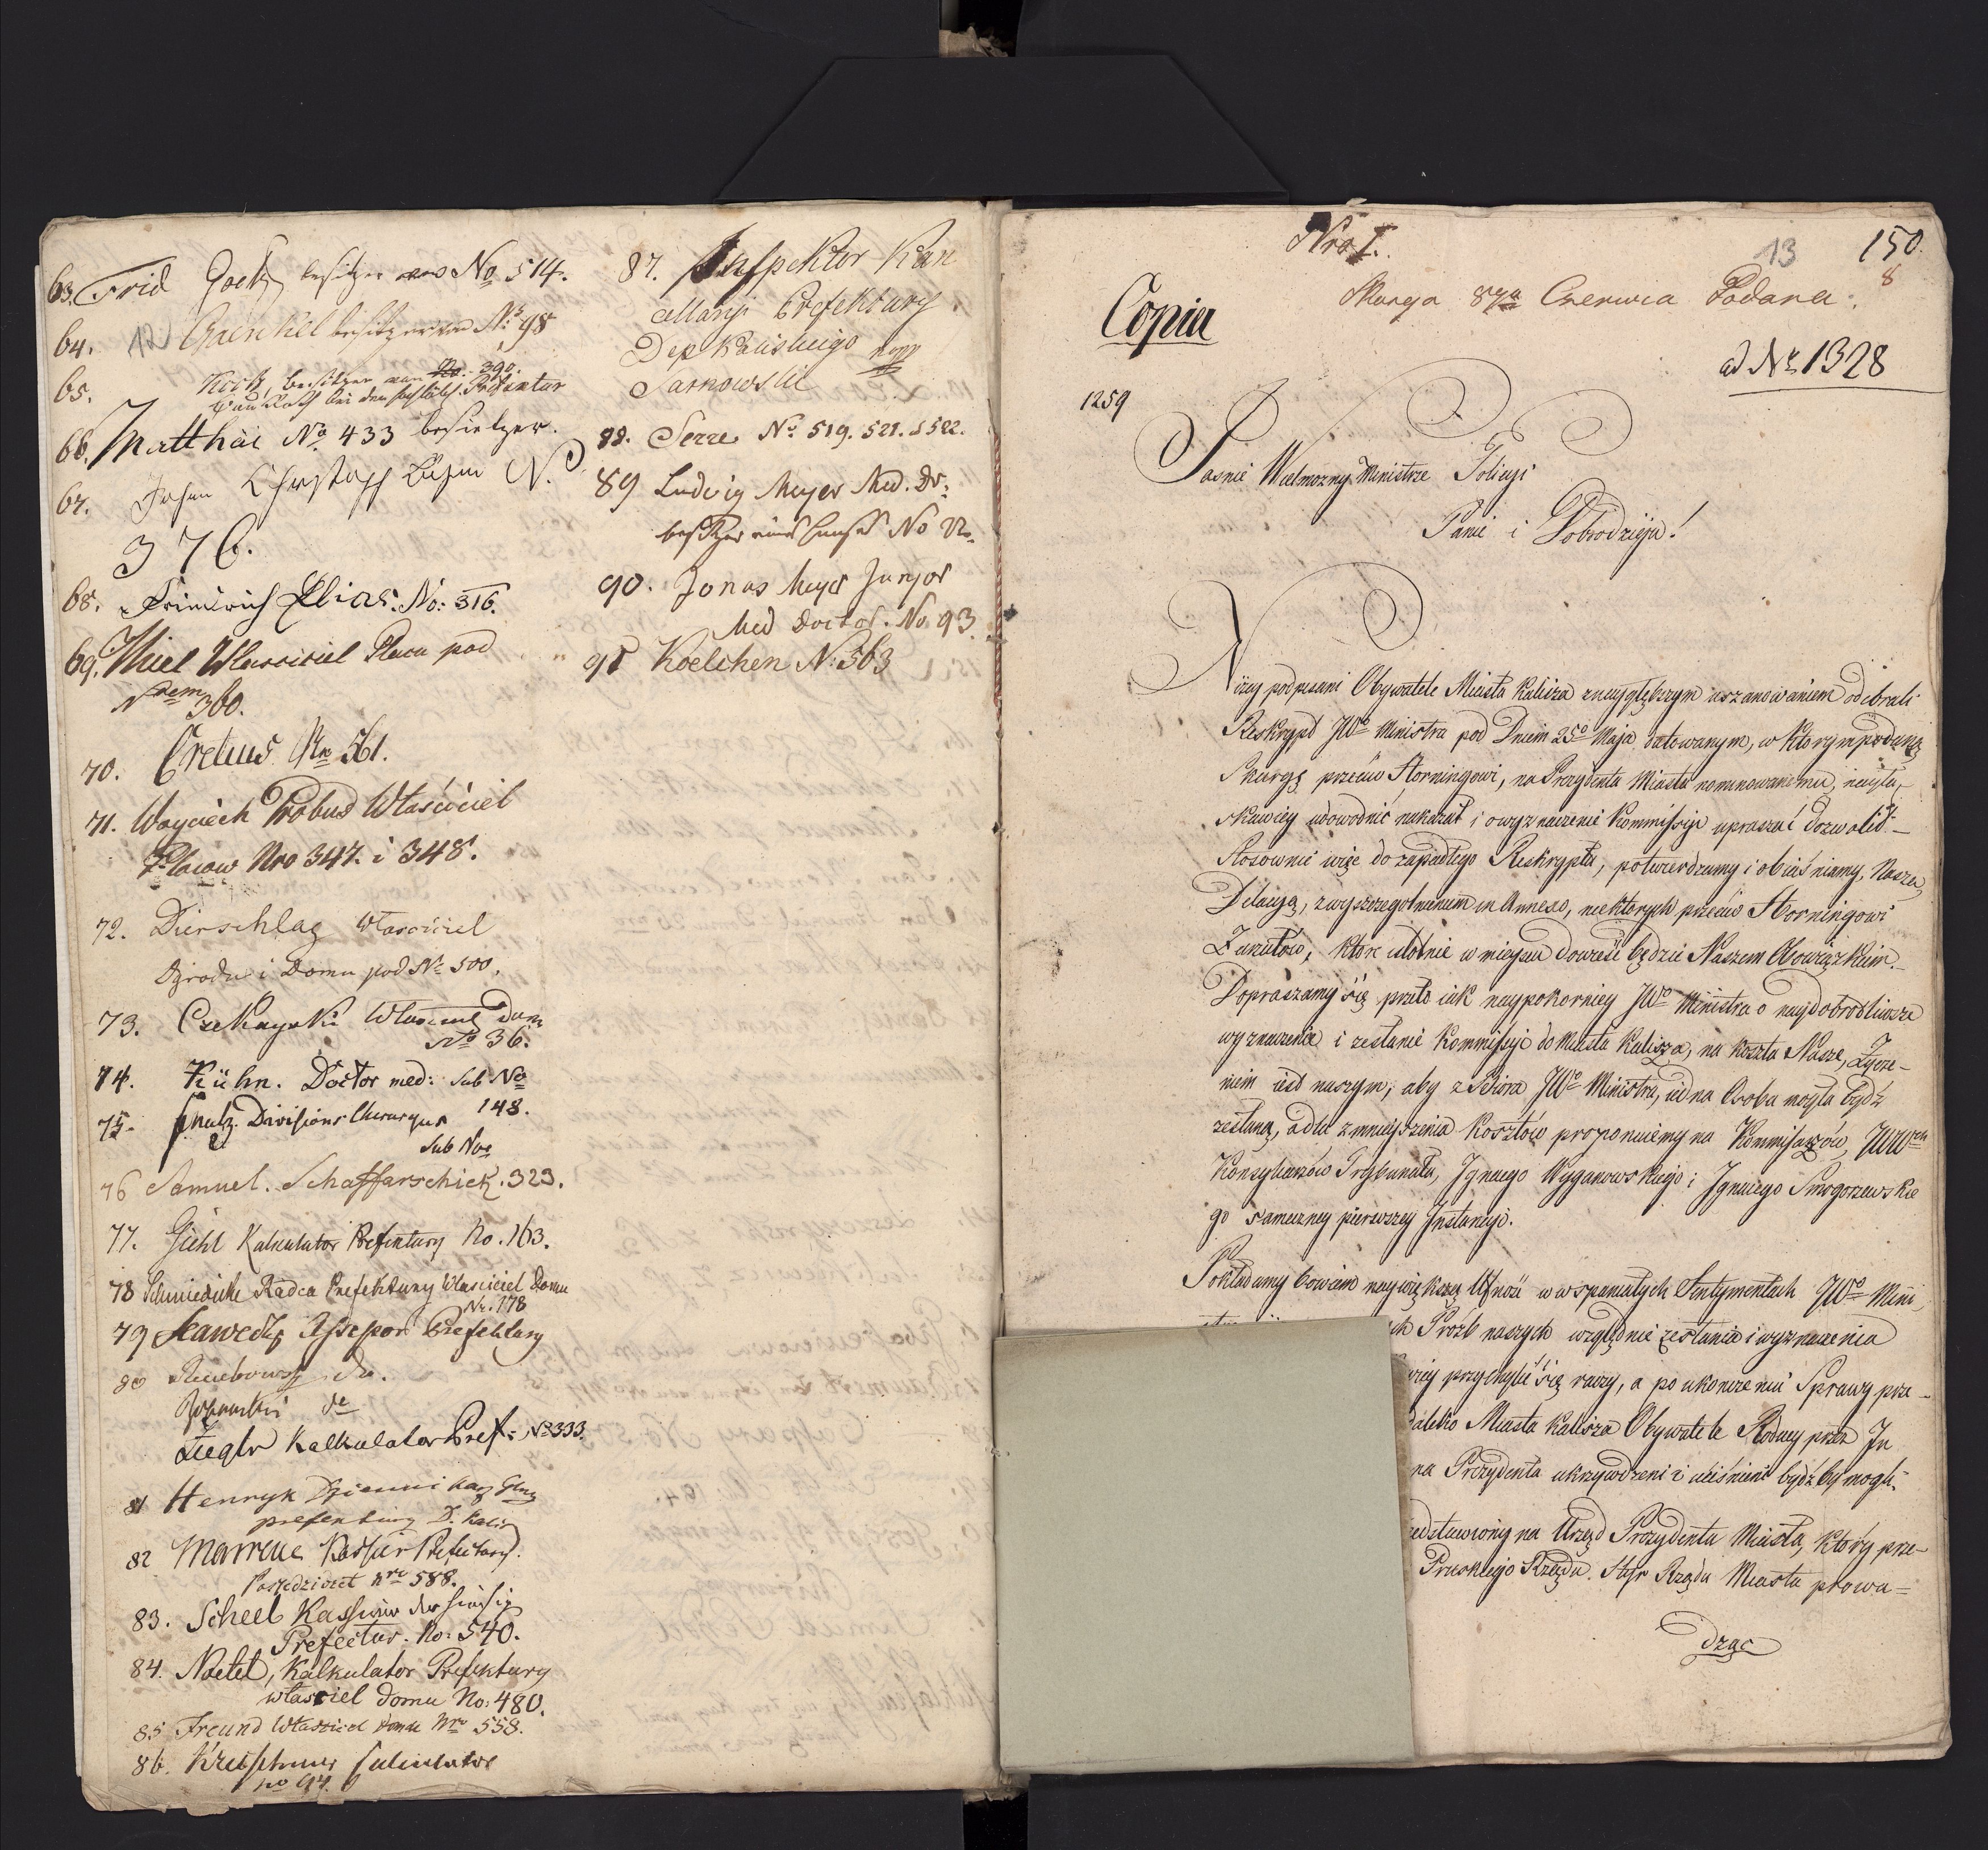 63. Frid Goetz besitzer No 514.
64. besitzer No 98
12
65. Kock, besitzer von No. 390.
66. Matthäi No 433 besietzer.
67. Johan Christoph Böhm N.
376.
68. Friedrich Elias. No: 316.
69. Thiel Własciciel Placu pod
Ndem 360.
70. Cretius Nro 561.
71. Woyciech Probus Właściciel
Placow Nro 347. i 348.
72. Dierschlag Własciciel
Ogrodu i Domu pod No 500.
73. Czekayski Własciciel Domu
No 36.
74. Kühn. Doctor med: Sub No
148.
75. Divisions Chirurgus
Sub No
76 Samuel. Schaffarschick. 323.
77. Giehl Kalkulator Prefektury No. 163.
78 Schmiedicke Radca Prefektury Własciciel Domu
Nr. 178
79 Assessor Prefektury
80
de
Ziegler Kalkulator Pref: No 333.
81 Henryk Dziennikarz
prefektury D. Kalis
82 Marrene Kassier Prefectury.
Posiedziciel Nro 588.
83. Scheel Kassierer der hiesig
Prefectur. No: 540.
84. Noetel, Kalkulator Prefektury
własciel domu No: 480.
85 Freund Własciciel domu Nro 558.
86. Kretschmer Calculator
no 94.
87. Inspektor Kan
cellaryi Prefektury
Dep Kaliskiego
Sarnowski
88. Serre No 519. 521. & 522.
89 Ludwig Meyer Med. Dr.
besitzer eines Hauses No
90. Jonas Meyer Junior
Med Doctor. No. 93.
91 Koelchen N: 563
Nro I.
13
150.
8
Skarga 87a Czerwca Podana.
Copia
ad Nr 1328
1259
Jasnie Wielmozny Ministrze Policyi
Panie i Dobrodzieju!
Niżey podpisani Obywatele Miasta Kalisza z naygłębszym uszanowaniem odebrali
Reskrypt JWo Ministra pod Dniem 25o Maja datowanym, w ktorym podaną
Skargę przeciw Horningowi, na Prezydenta Miasta nominowanemu,
udowodnić nakazał i o wyznaczenie Kommissyi upraszać dozwolił. –
Stosownie więc do zapadłego Reskryptu, potwierdzamy i obiaśniamy, Naszą
Delacyą, z wyszczegolnieniem in Annexo, niektorych przeciw Horningowi
Zarzutów, które istotnie w mieyscu dowieść będzie Naszem Obowiązkiem. –
Dopraszamy się przeto iak naypokorniey JWo Ministra o naydobrotliwsze
wyznaczenie i zesłanie Kommissyi do Miasta Kalisza, na koszta Nasze, Życze-
niem iest naszym, aby z Biora JWo Ministra, iedna Osoba mogła bydź
zesłaną, a dla zmnieyszenia Kosztów proponuiemy na Kommissarzów, JWWch
Konsyliarzów Trybunału, Ignacego Wyganowskiego i Ignacego Smogorzewskie
go tameczney pierwszey Instancyi.
Pokładamy bowiem naywiększą Ufność w wspaniałych Sentymentach JWo Mini
ch Proźb naszych względnie zesłania i wyznaczenia
przychylić się raczy, a po ukończeniu Sprawy prze-
Miasta Kalisza Obywatele Rodacy przez In
na Prezydenta ukrzywdzeni i uciśnieni bydź by mogli.
edstawiony na Urząd Prezydenta Miasta, który prze-
Pruskiego Rządu. Ster Rządu Miasta prowa=
dząc